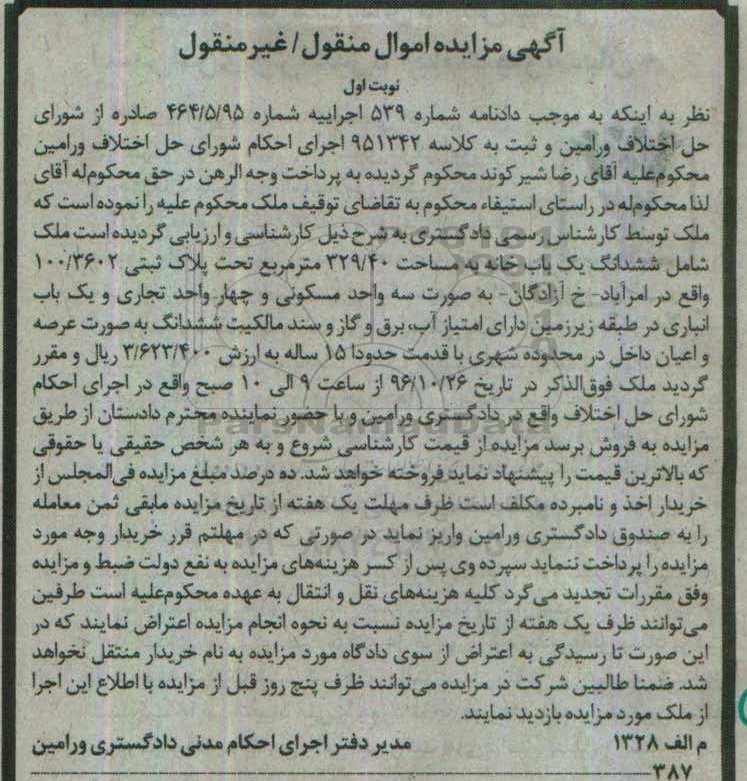 آگهی مزایده اموال منقول/غیرمنقول
نوبت اول
نظر به اینکه به موجب دادنامه شماره ۵۳۹ اجراییه شماره ۴۶۴/۵/۹۵ صادره از شورای
حل اختلاف ورامین و ثبت به کلاسه ۹۵۱۳۴۲ اجرای احکام شورای حل اختلاف ورامین
محکوم‌علیه آقای رضا شیرکوند محکوم گردیده به پرداخت وجه الرهن در حق محکوم‌له آقای
لذا محکوم‌له در راستای استیفاء محکوم به تقاضای توقیف ملک محکوم علیه را نموده است که
ملک توسط کارشناس رسمی دادگستری به شرح ذیل کارشناسی و ارزیابی گردیده است ملک
شامل ششدانگ یک باب خانه به مساحت ۳۲۹/۴۰ مترمربع تحت پلاک ثبتی ۱۰۰/۳۶۰۲
واقع در امرآباد- خ آزادگان- به صورت سه واحد مسکونی و چهار واحد تجاری و یک باب
انباری در طبقه زیرزمین دارای امتیاز آب، برق و گاز و سند مالکیت ششدانگ به صورت عرصه
و اعیان داخل در محدوده شهری با قدمت حدودا ۱۵ ساله به ارزش ۳/۶۲۳/۴۰۰ ریال و مقرر
گردید ملک فوق‌الذکر در تاریخ ۹۶/۱۰/۲۶ از ساعت ۹ الی ۱۰ صبح واقع در اجرای احکام
شورای حل اختلاف واقع در دادگستری ورامین و با حضور نماینده محترم دادستان از طریق
مزایده به فروش برسد مزایده از قیمت کارشناسی شروع و به هر شخص حقیقی یا حقوقی
که بالاترین قیمت را پیشنهاد نماید فروخته خواهد شد. ده درصد مبلغ مزایده فی‌المجلس از
خریدار اخذ و نامبرده مکلف است ظرف مهلت یک هفته از تاریخ مزایده مابقی ثمن معامله
را به صندوق دادگستری ورامین واریز نماید در صورتی که در مهلتم قرر خریدار وجه مورد
مزایده را پرداخت ننماید سپرده وی پس از کسر هزینه‌های مزایده به نفع دولت ضبط و مزایده
وفق مقررات تجدید می‌گرد کلیه هزینه‌های نقل و انتقال به عهده محکوم‌علیه است طرفین
می‌توانند ظرف یک هفته از تاریخ مزایده نسبت به نحوه انجام مزایده اعتراض نمایند که در
این صورت تا رسیدگی به اعتراض از سوی دادگاه مورد مزایده به نام خریدار منتقل نخواهد
شد. ضمنا طالبین شرکت در مزایده می‌توانند ظرف پنج روز قبل از مزایده با اطلاع این اجرا
از ملک مورد مزایده بازدید نمایند.
م الف ۱۳۲۸ مدیر دفتر اجرای احکام مدنی دادگستری ورامین
۳۸۷
ParsNamadData